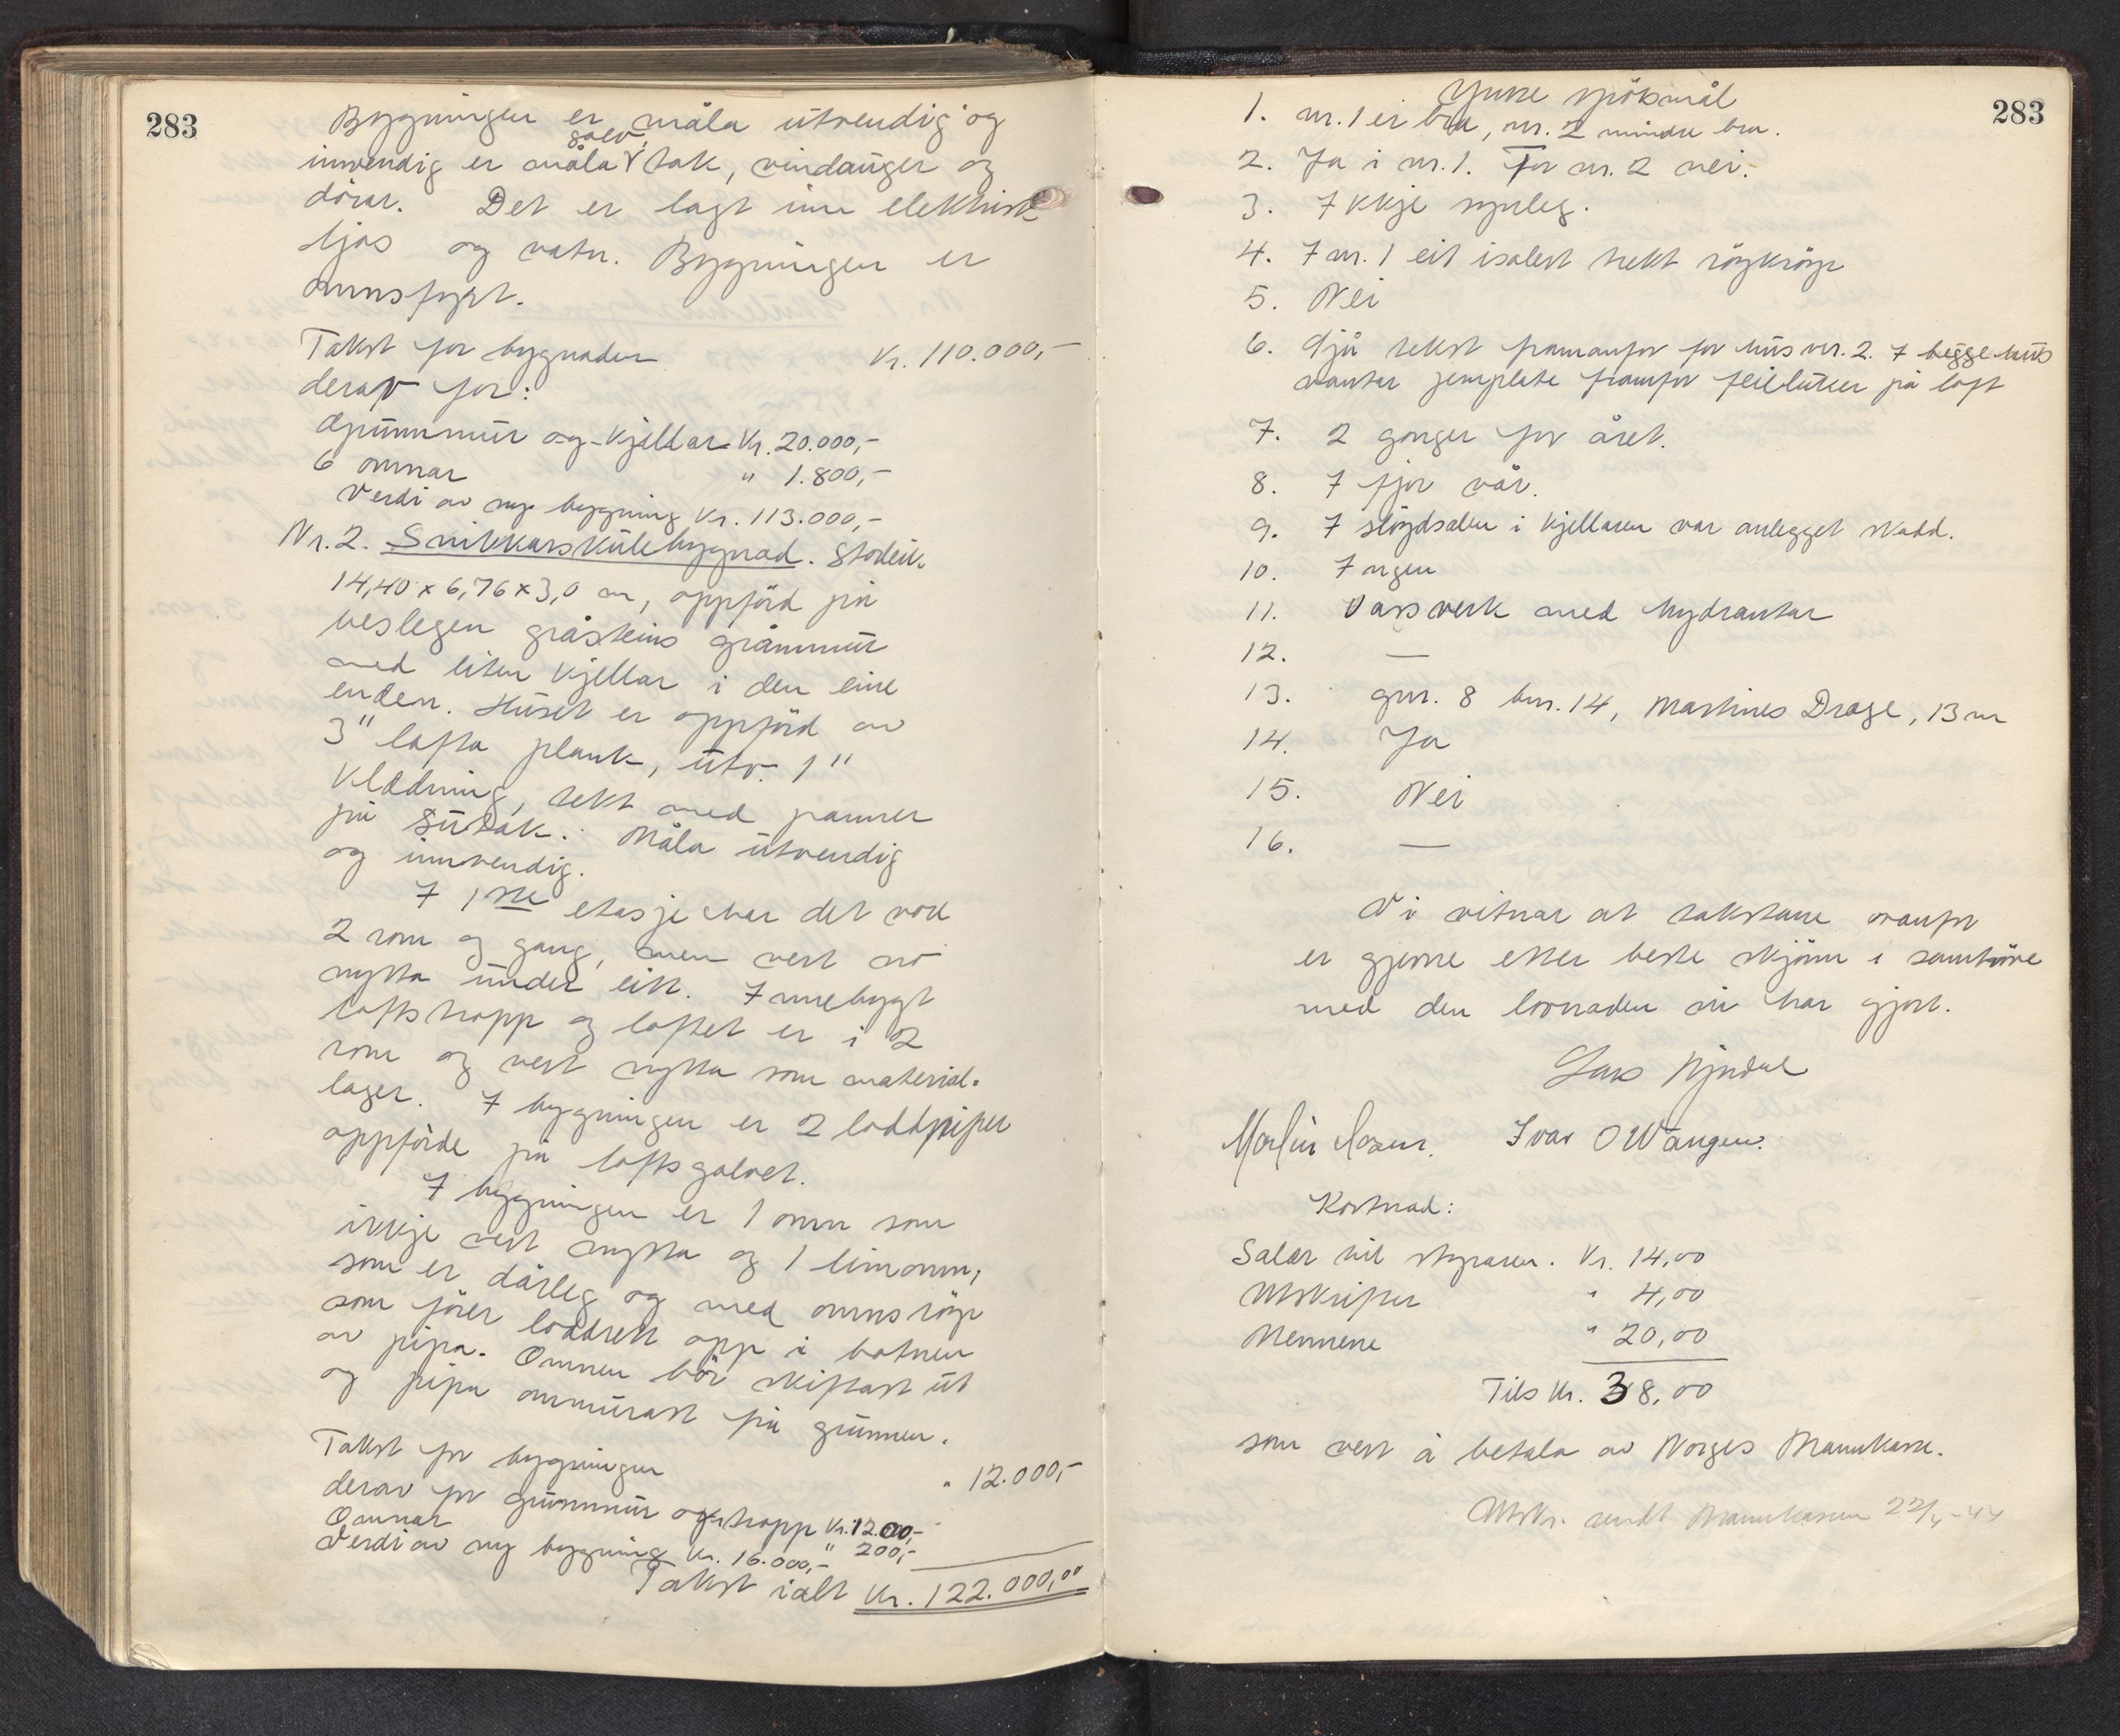 283
Bygningen er måla utvendig og
golv,
innvendig er måla V tak, vindauger og
dörar. Det er lagt inn elektrisk
ljos og vatn. Bygningen er
omnsfyrt.
Takst for bygnaden Kr. 110.000,-
derav for:
Grunnmur og kjellar Kr. 20.000,-
6 omnar " 1.800,-
Verdi av ny bygning Kr. 113.000,-
Nr. 2. Snikkarskulebygnad. Storleik
14,40 x 6,76 x 3,0 m, oppförd på
gråsteins grunnmur
med liten kjellar i den eine
enden. Huset er oppförd av
3" lafta plank, utv. 1"
klædning, tekt med panner
på sutak. Måla utvendig
og innvendig.
I 1ste etasje har det vore
2 rom og gang, men vert no
nytta under eitt. Innebygt
loftstropp og loftet er i 2
rom og vert nytta som material-
lager. I bygningen er 2 loddpiper
oppförde på loftsgolvet.
I bygningen er 1 omn som
ikkje vert nytta og 1 limomn,
som er dårleg og med omnsröyr
som förer loddrett opp i botnen
av pipa. Omnen bör skiftast ut
og pipa ommurast frå grunnen.
Takst for bygningen " 12.000,-
derav for grunnmur og tropp Kr. 1200,-
Omnar " 200,-
Verdi av ny bygning Kr. 16.000,-
Takst ialt Kr. 122.000,00
283
Ymse spörsmål
1. nr. 1 er bra, nr. 2 mindre bra.
2. Ja i nr. 1. For nr. 2 nei.
3. Ikkje synleg.
4. I nr. 1 eit isolert trekt röykröyr
5. Nei
6. Sjå tekst framanfor for hus nr. 2. I begge hus
vantar jernplate framfor feilluker på loft
7. 2 gonger for året.
8. I fjor vår.
9. I slöydsalen i kjellaren var anlegget skadd.
10. Ingen
11. Vassverk med hydrantar
12. —
13. gnr. 8 bnr. 14, Martines Drage, 13 m
14. Ja
15. Nei
16. —
Vi vitnar at takstane ovanfor
er gjevne etter beste skjönn i samhöve
med den lovnaden vi har gjort.
Lars
Ivar O Wangen.
Kostnad:
Salær til styraren. Kr. 14,00
Utskrifter " 4,00
Mennene " 20,00
Tils Kr. 38,00
som vert å betala av Norges Brannkasse.
Utskr. sendt Brannkassen 22/4-44